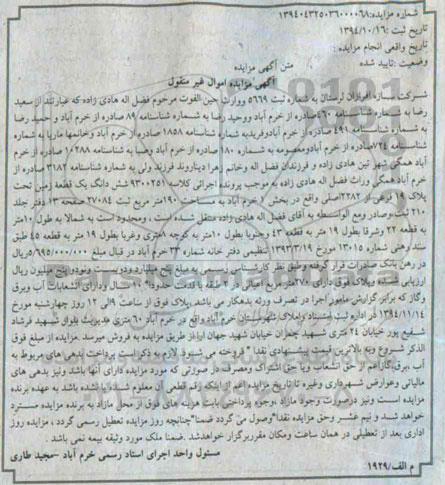 شماره مزایده: ۱۳۹۴۰۴۳۲۵۰۳۶۰۰۰۰۶۸
تاریخ ثبت: ۱۳۹۴/۱۰/۱۶
تاریخ واقعی انجام مزایده:
وضعیت: تایید شده
متن آگهی مزایده
آگهی مزایده اموال غیر منقول
شرکت سازه افرازان لرستان به شماره ثبت ۵۶۶۹ ووراث حین الفوت مرحوم فضل اله هادی زاده که عبارتند از سعید
رضا به شماره شناسنامه ۴۶۰صادره از خرم آباد ووحید رضا به شماره شناسنامه ۸۹ صادره از خرم آباد و حمید رضا
به شماره شناسنامه ۴۹۱ صادره از خرم آبادوفریدبه شماره شناسنامه ۱۸۵۸ صادره از خرم آباد وخانمها ماریا به شماره
شناسنامه ۷۲۴صادره از خرم آبادومعصومه به شماره ۱۸۰ صادره از خرم آباد وصبا به شماره شناسنامه ۱۰۲۸۸ صادره از خرم
آباد همگی شهر تین هادی زاده و فرزندان فضل اله وخانم زهرا دیناروند فرزند ولی به شماره شناسنامه ۳۱۸۲ صادره از
خرم آباد همگی وراث فضل اله هادی زاده به موجب پرونده اجرائی کلاسه ۹۳۰۰۲۵۱ شش دانگ یک قطعه زمین تحت
پلاک ۱۹ فرعی از ۲۲۸۲اصلی واقع در بخش ۱ خرم آباد به مساحت ۱۹۰ متر مربع ثبت ۲۷۰۸۴ صفحه ۱۳ دفتر جلد
۲۱۰ ثبت وصادر ومع الواسطه به آقای فضل اله هادی زاده منتقل شده است ، ومحدود است به شمالا به طول ۱۰متر
به قطعه ۲۲ وشرقا بطول ۱۹ متر به قطعه ۴۳ وجنوبا بطول ۱۰متر به کوچه ۸متری وغربا بطول ۱۹ متر به قطعه ۴۵ طبق
سند رهنی شماره ۱۳۰۱۵ مورخ ۱۳۹۳/۳/۱۹ تنظیمی دفتر خانه شماره ۳۳ خرم آباد در قبال مبلغ ۵/۶۹۵/۰۰۰/۰۰۰ریال
در رهن بانک صادرات قرار گرفته وطبق نظر کارشناس رسمی به مبلغ پنج میلیارد ودویست ونودو پنج میلیون ریال
ارزیابی شده وپلاک فوق دارای ۲۷۰متر مربع اعیانی در ۲ طبقه با قدمت حدودا" ۱۰ سال ودارای انشعابات آب وبرق
وگاز که برابر گزارش مامور اجرا در تصرف ورثه بدهکار می باشد .پلاک فوق از ساعت ۹الی ۱۲ روز چهارشنبه مورخ
۱۳۹۴/۱۱/۱۴ در اداره ثبت اسناد واملاک شهرستان خرم آباد واقع در خرم آباد ۶۰ متری مدیریت بلوار شهید فرشاد
شفیع پور خیابان ۲۴ متری شهید چمران خیابان شهید جهان آرا از طریق مزایده به فروش میرسد .مزایده از مبلغ فوق
الذکر شروع وبه بالاترین قیمت پیشنهادی نقدا" فروخته می شود. لازم به ذکر است پرداخت بدهی های مربوط به
آب ،برق ،گازاعم از حق انشعاب ویا حق اشتراک ومصرف در صورتی که مورد مزایده دارای آنها باشد ونیز بدهی های
مالیاتی وعوارض شهرداری وغیره تا تاریخ مزایده اعم از اینکه رقم قطعی آن معلوم شده یا نشده باشد به عهده برنده
مزایده است ونیز درصورت وجود مازاد ،وجوه پرداختی بابت هزینه های فوق از محل مازاد به برنده مزایده مسترد
خواهد شد و نیم عشر وحق مزایده نقدا"وصول می گردد ضمنا"چنانچه روز مزایده تعطیل رسمی گردد ، مزایده روز
اداری بعد از تعطیلی در همان ساعت ومکان مقرربرگزار خواهدشد .ضمنا ملک مورد وثیقه بیمه نمی باشد .
مسئول واحد اجرای اسناد رسمی خرم آباد –مجید طاری
م الف/۱۹۲۹